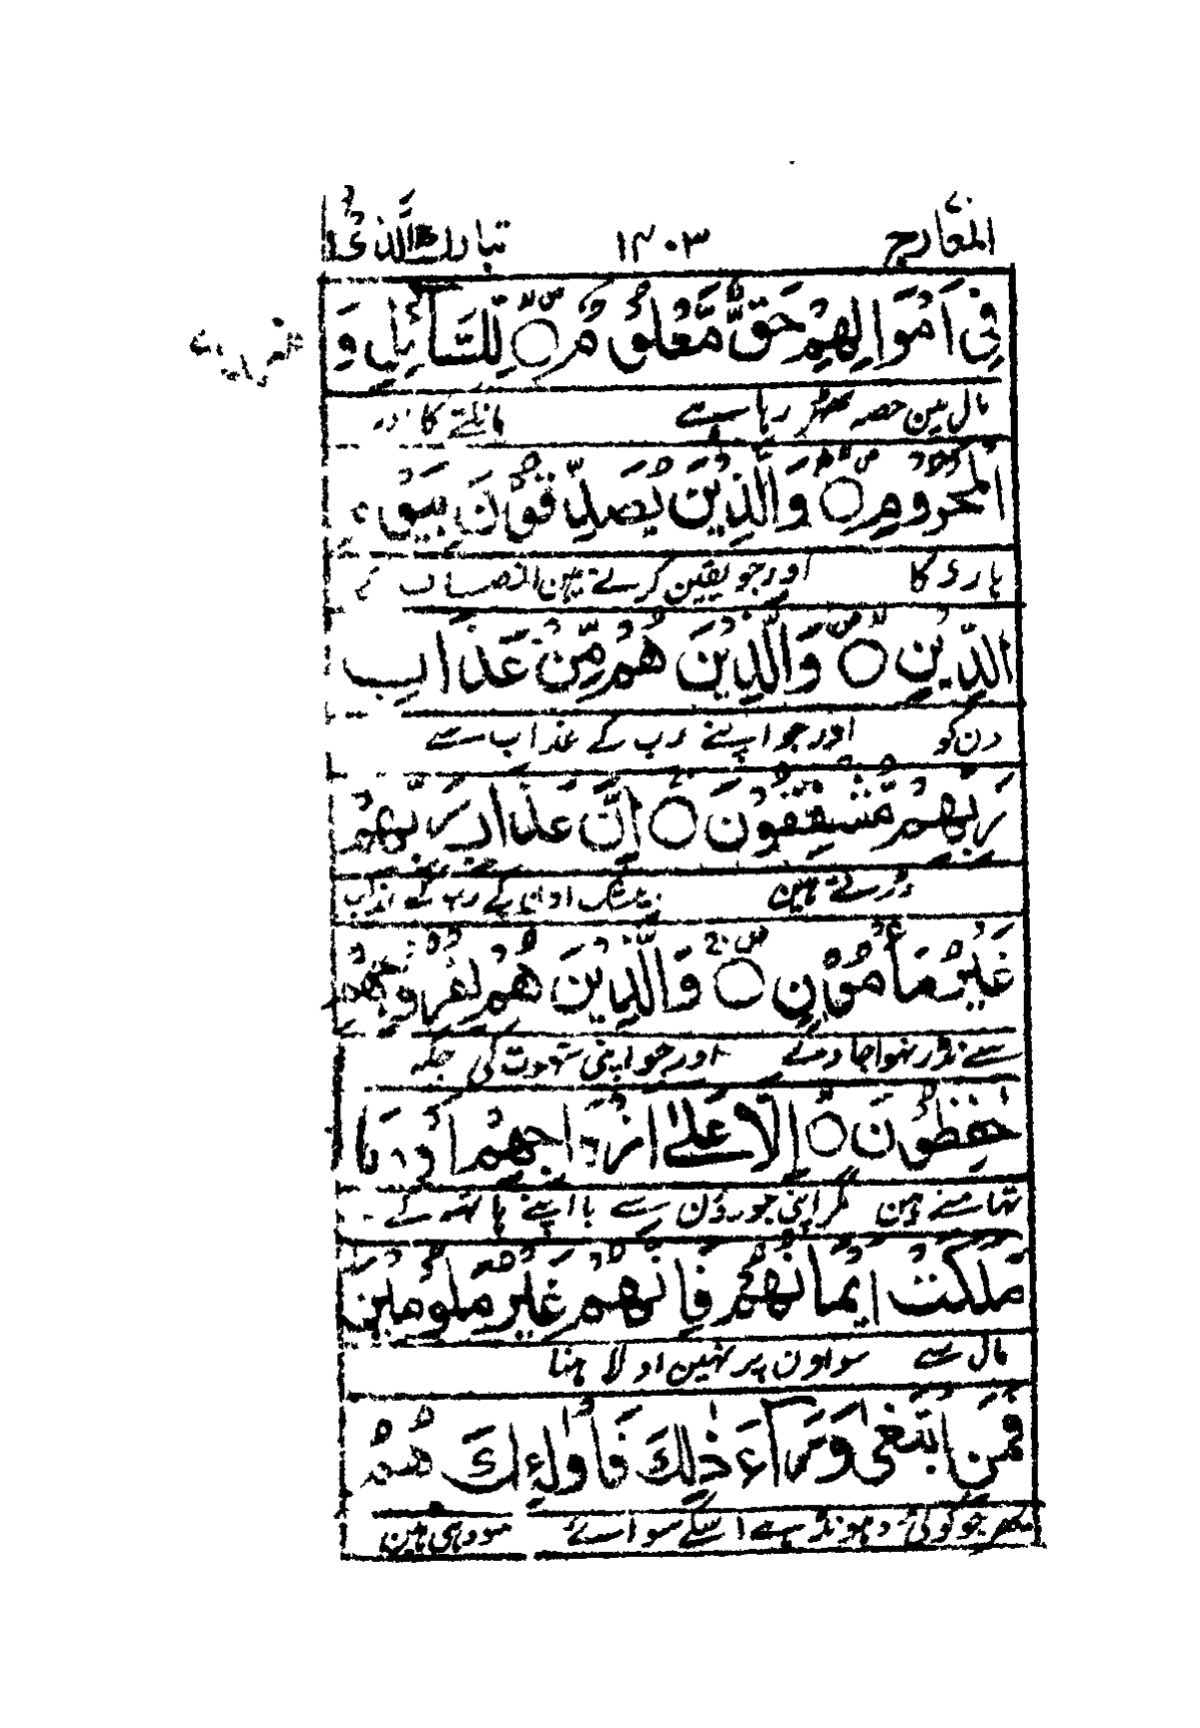 المعارج ١٤٠٣ تبارك الذى
فِىٓ اَمْوَالِهِمْ حَقٌّ مَّعْلُوْمٌ ○ لِّلسَّآئِلِ وَ
مال مین حصہ ٹھر رہا ہے مانگتے کا اور
الْمَحْرُوْمِ ○ وَالَّذِيْنَ يُصَدِّقُوْنَ بِيَوْمِ
ہارے کا اور جو یقین کرتے ہین انصاف کے
الدِّيْنِ ○ وَالَّذِيْنَ هُمْ مِّنْ عَذَابِ
دن کو اور جو اپنے رب کے عذاب سے
رَبِّهِمْ مُّشْفِقُوْنَ ○ اِنَّ عَذَابَ رَبِّهِمْ
ڈرتے ہین بیشک اونکے رب کے عذاب
غَيْرُ مَاْمُوْنٍ ○ وَالَّذِيْنَ هُمْ لِفُرُوْجِهِمْ
سے نڈر نہوا جاوے اور جو اپنی شہوت کی جگہ
حٰفِظُوْنَ ○ اِلَّا عَلٰٓى اَزْوَاجِهِمْ اَوْ مَا
تھامتے ہین مگر اپنی جورؤن سے یا اپنے ہاتھ کے
مَلَكَتْ اَيْمَانُهُمْ فَاِنَّهُمْ غَيْرُ مَلُوْمِيْنَ
مال سے سو اون پر نہین اولاہنا
فَمَنِ ابْتَغٰى وَرَآءَ ذٰلِكَ فَاُولٰٓئِكَ هُمُ
پھر جو کوئی ڈھونڈے اسکے سواے سو وہی ہین